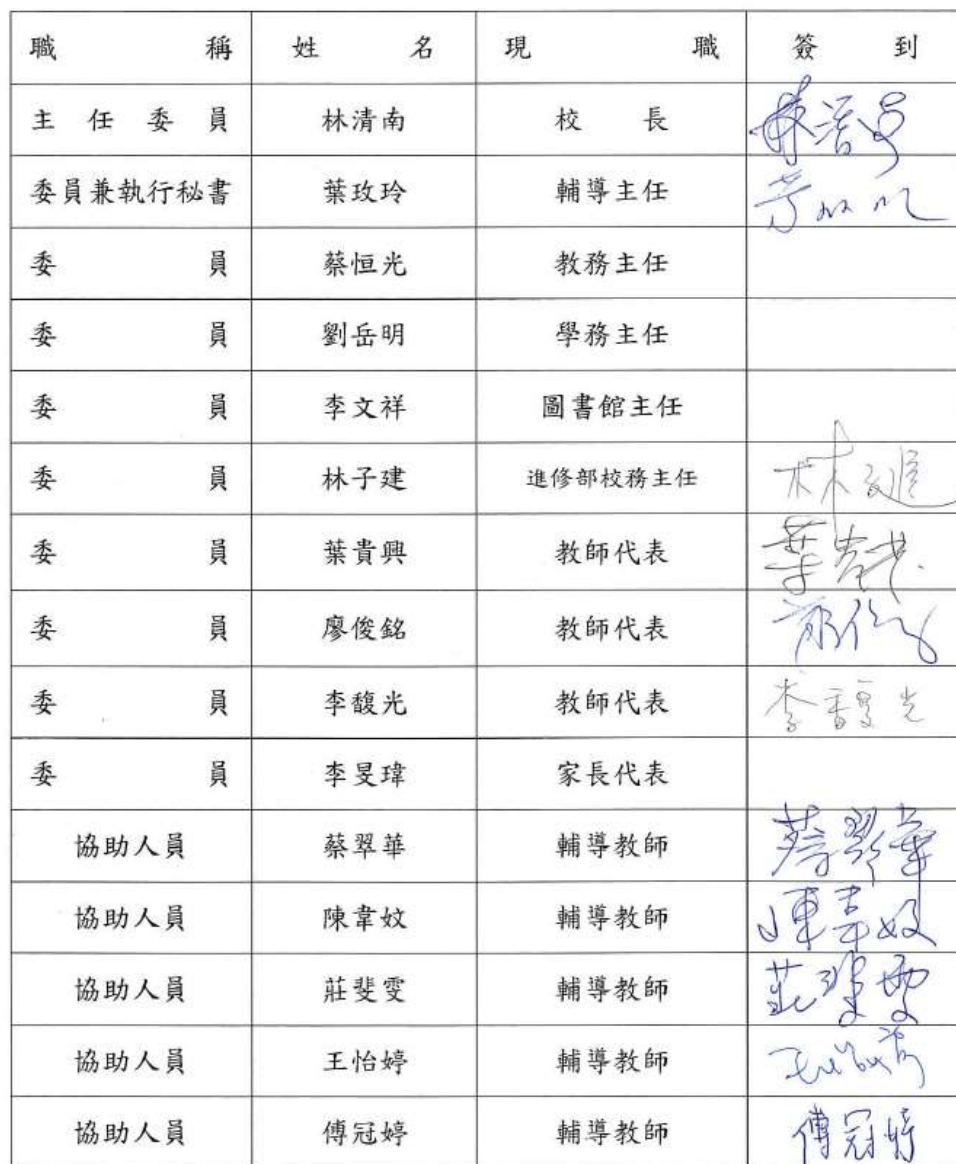 職稱 姓名 現職 簽到
主任委員 林清南 校長
委員兼執行秘書 葉玫玲 輔導主任
委員 蔡恒光 教務主任
委員 劉岳明 學務主任
委員 李文祥 圖書館主任
委員 林子建 進修部校務主任
委員 葉貴興 教師代表
委員 廖俊銘 教師代表
委員 李馥光 教師代表 李馥光
委員 李旻瑋 家長代表
協助人員 蔡翠華 輔導教師 蔡翠華
協助人員 陳韋妏 輔導教師 陳韋妏
協助人員 莊斐雯 輔導教師 莊斐雯
協助人員 王怡婷 輔導教師
協助人員 傅冠婷 輔導教師 傅冠婷